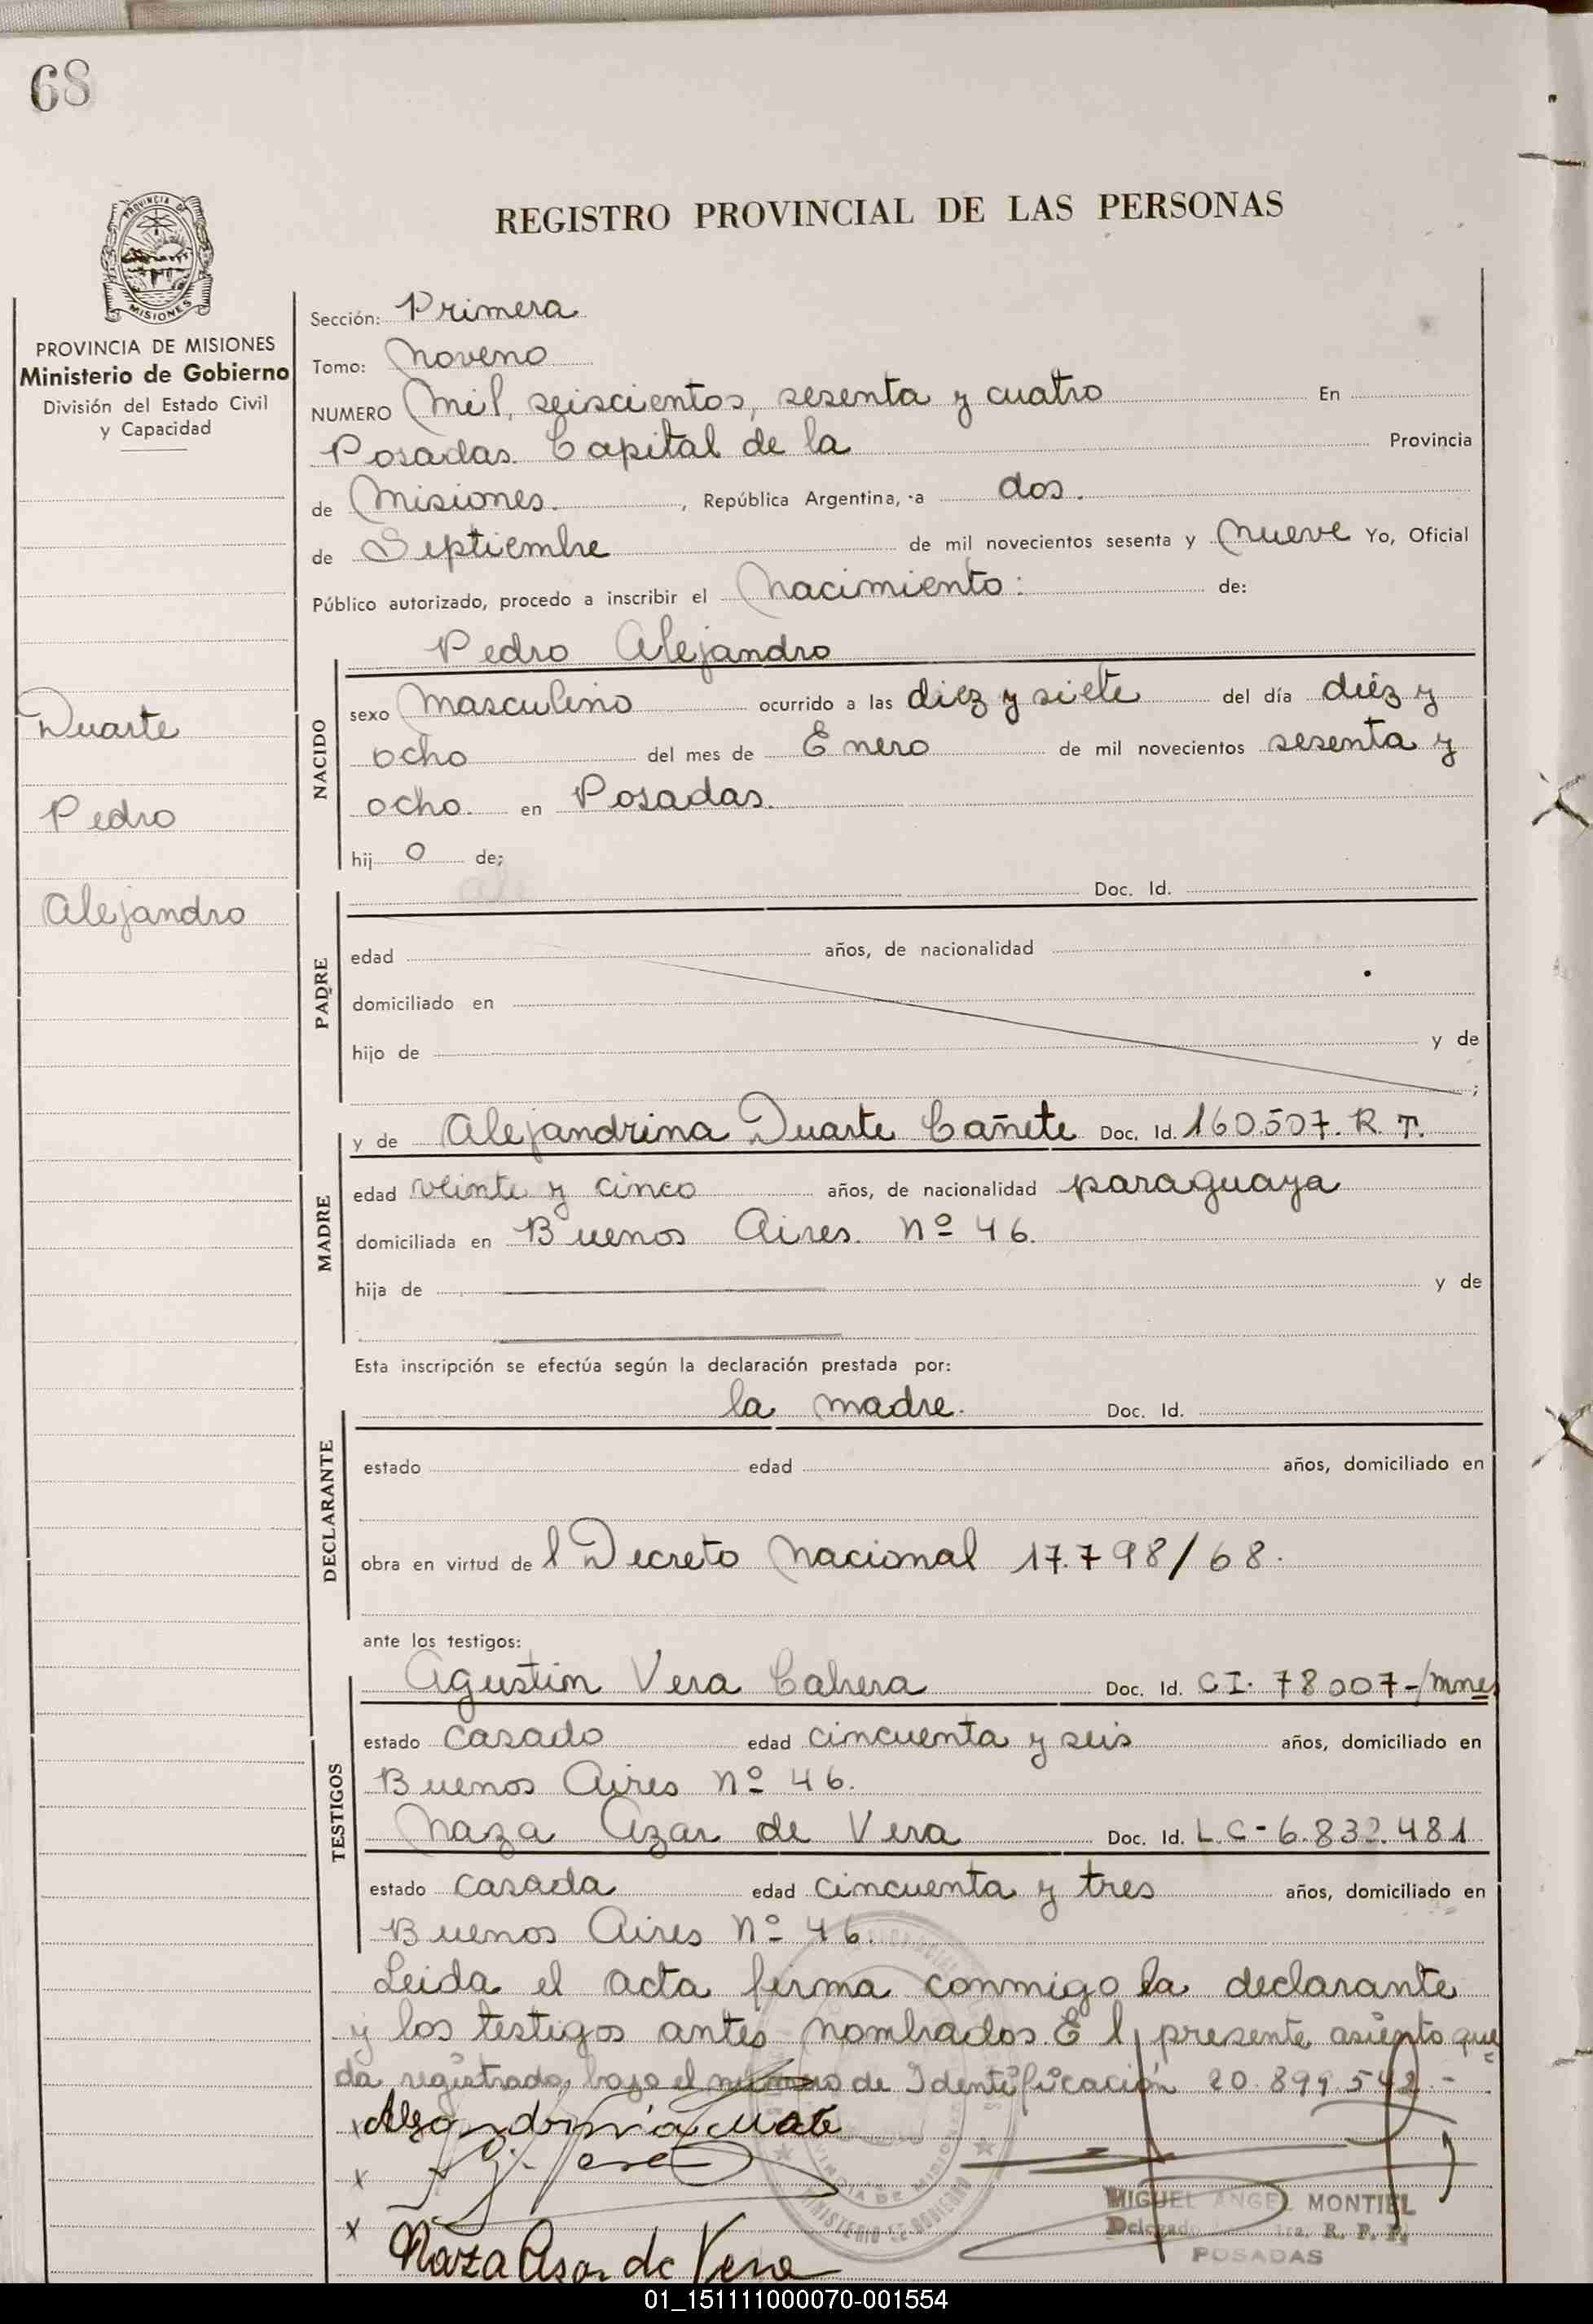 68
REGISTRO PROVINCIAL DE LAS PERSONAS
PROVINCIA DE MISIONES
PROVINCIA DE MISIONES
Ministerio de Gobierno
División del Estado Civil
y Capacidad
Duarte
Pedro
Alejandro
Sección: Primera
Tomo: Noveno
NUMERO Mil, seiscientos, sesenta y cuatro En
Posadas. Capital de la Provincia
de Misiones. , República Argentina, a dos.
de Septiembre de mil novecientos sesenta y Nueve Yo, Oficial
Público autorizado, procedo a inscribir el Nacimiento: de:
Pedro Alejandro
NACIDO
sexo Masculino ocurrido a las diez y siete del día diéz y
ocho del mes de Enero de mil novecientos sesenta y
ocho. en Posadas.
hij o de;
Doc. Id.
PADRE
edad años, de nacionalidad
domiciliado en
hijo de y de
;
y de Alejandrina Duarte Cañete Doc. Id. 160.507. R. T.
MADRE
edad veinte y cinco años, de nacionalidad paraguaya
domiciliada en Buenos Aires. Nº 46.
hija de y de
Esta inscripción se efectúa según la declaración prestada por:
la madre. Doc. Id.
DECLARANTE
estado edad años, domiciliado en
obra en virtud de l Decreto Nacional 17.798/68.
ante los testigos:
Agustin Vera Cabrera Doc. Id. CI. 78007-/Mnes
TESTIGOS
estado casado edad cincuenta y seis años, domiciliado en
Buenos Aires Nº 46.
Naza Azar de Vera Doc. Id. L.C-6.832.481
estado casada edad cincuenta y tres años, domiciliado en
Buenos Aires Nº 46.
Leida el acta firma conmigo la declarante
y los testigos antes nombrados. El presente asiento que
da registrado bajo el número de Identificación 20.899.542.-
x
x
x Naza Asar de Vera
MIGUEL ANGEL MONTIEL
Delegado 1ra. R. P. P.
POSADAS
01_151111000070-001554